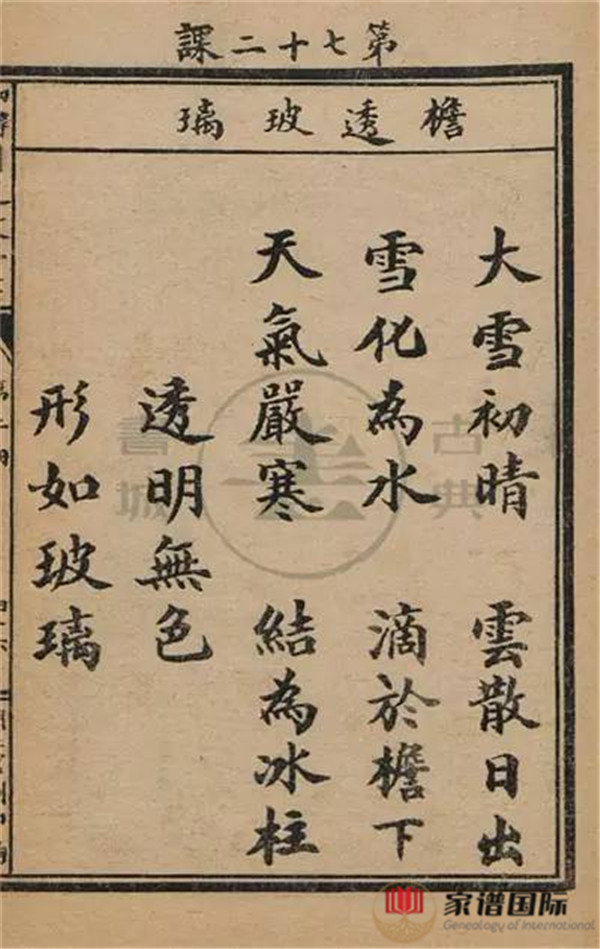 第七十二課
檐 透 玻 璃
大雪初晴 雲散日出
雪化為水 滴於檐下
天氣嚴寒 結為冰柱
透明無色
形如玻璃
古典
書城
家谱国际
Genealogy of International